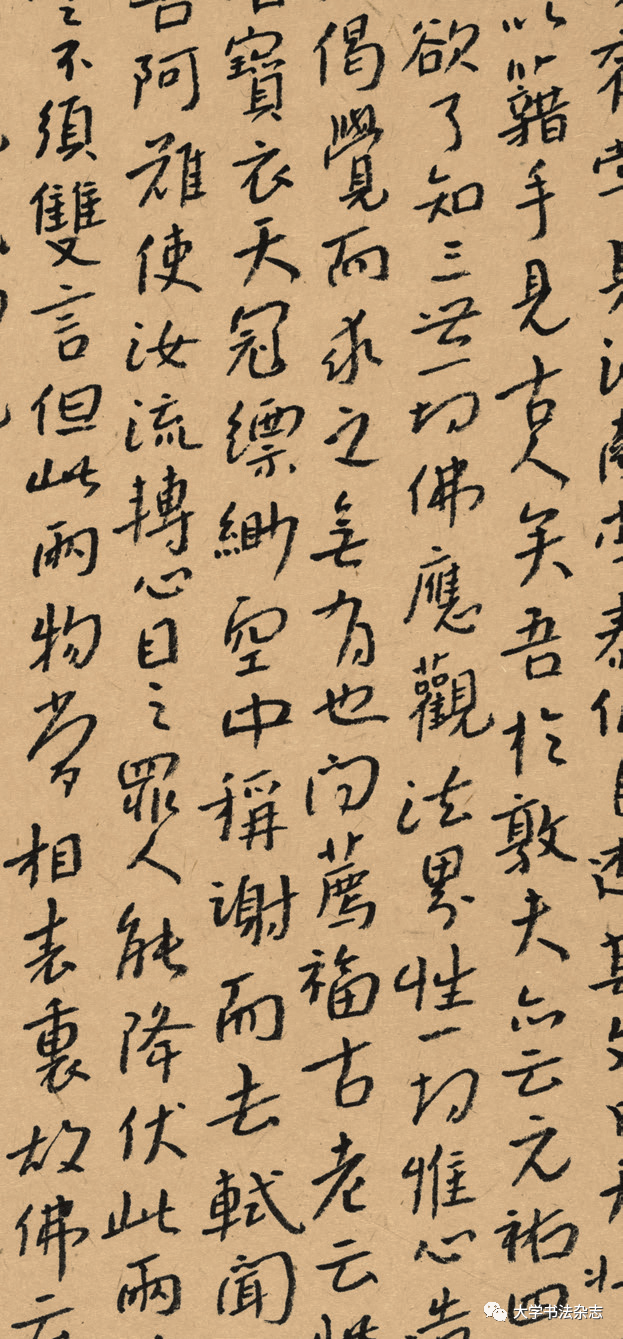 以藉手見古人矣吾於敦夫亦云元祐四
欲了知三世一切佛應觀法界性一切惟心造
偈覺而求之無有也問薦福古老云
寶衣天冠縹緲空中稱謝而去軾聞
告阿難使汝流轉心目之罪人能降伏此兩
不須雙言但此兩物常相表裏故佛云
大学书法杂志